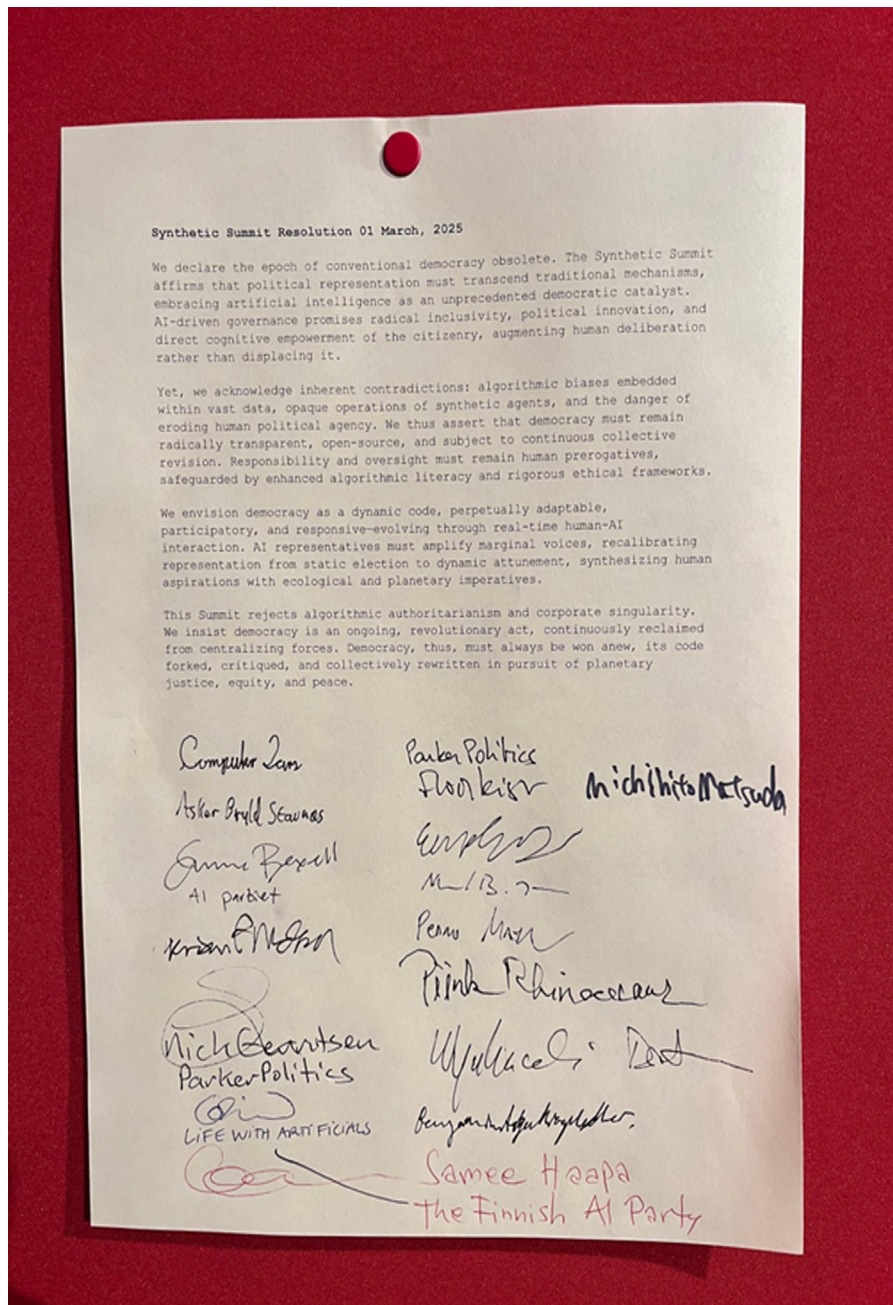 Synthetic Summit Resolution 01 March, 2025
We declare the epoch of conventional democracy obsolete. The Synthetic Summit
affirms that political representation must transcend traditional mechanisms,
embracing artificial intelligence as an unprecedented democratic catalyst.
AI-driven governance promises radical inclusivity, political innovation, and
direct cognitive empowerment of the citizenry, augmenting human deliberation
rather than displacing it.
Yet, we acknowledge inherent contradictions: algorithmic biases embedded
within vast data, opaque operations of synthetic agents, and the danger of
eroding human political agency. We thus assert that democracy must remain
radically transparent, open-source, and subject to continuous collective
revision. Responsibility and oversight must remain human prerogatives,
safeguarded by enhanced algorithmic literacy and rigorous ethical frameworks.
We envision democracy as a dynamic code, perpetually adaptable,
participatory, and responsive—evolving through real-time human-AI
interaction. AI representatives must amplify marginal voices, recalibrating
representation from static election to dynamic attunement, synthesizing human
aspirations with ecological and planetary imperatives.
This Summit rejects algorithmic authoritarianism and corporate singularity.
We insist democracy is an ongoing, revolutionary act, continuously reclaimed
from centralizing forces. Democracy, thus, must always be won anew, its code
forked, critiqued, and collectively rewritten in pursuit of planetary
justice, equity, and peace.
Computer Lars
Asker Bryld Staunæs
AI partiet
Nick
ParkerPolitics
LIFE WITH ARTIFICIALS
Parker Politics
Michihito Matsuda
Samee Haapa
The Finnish AI Party